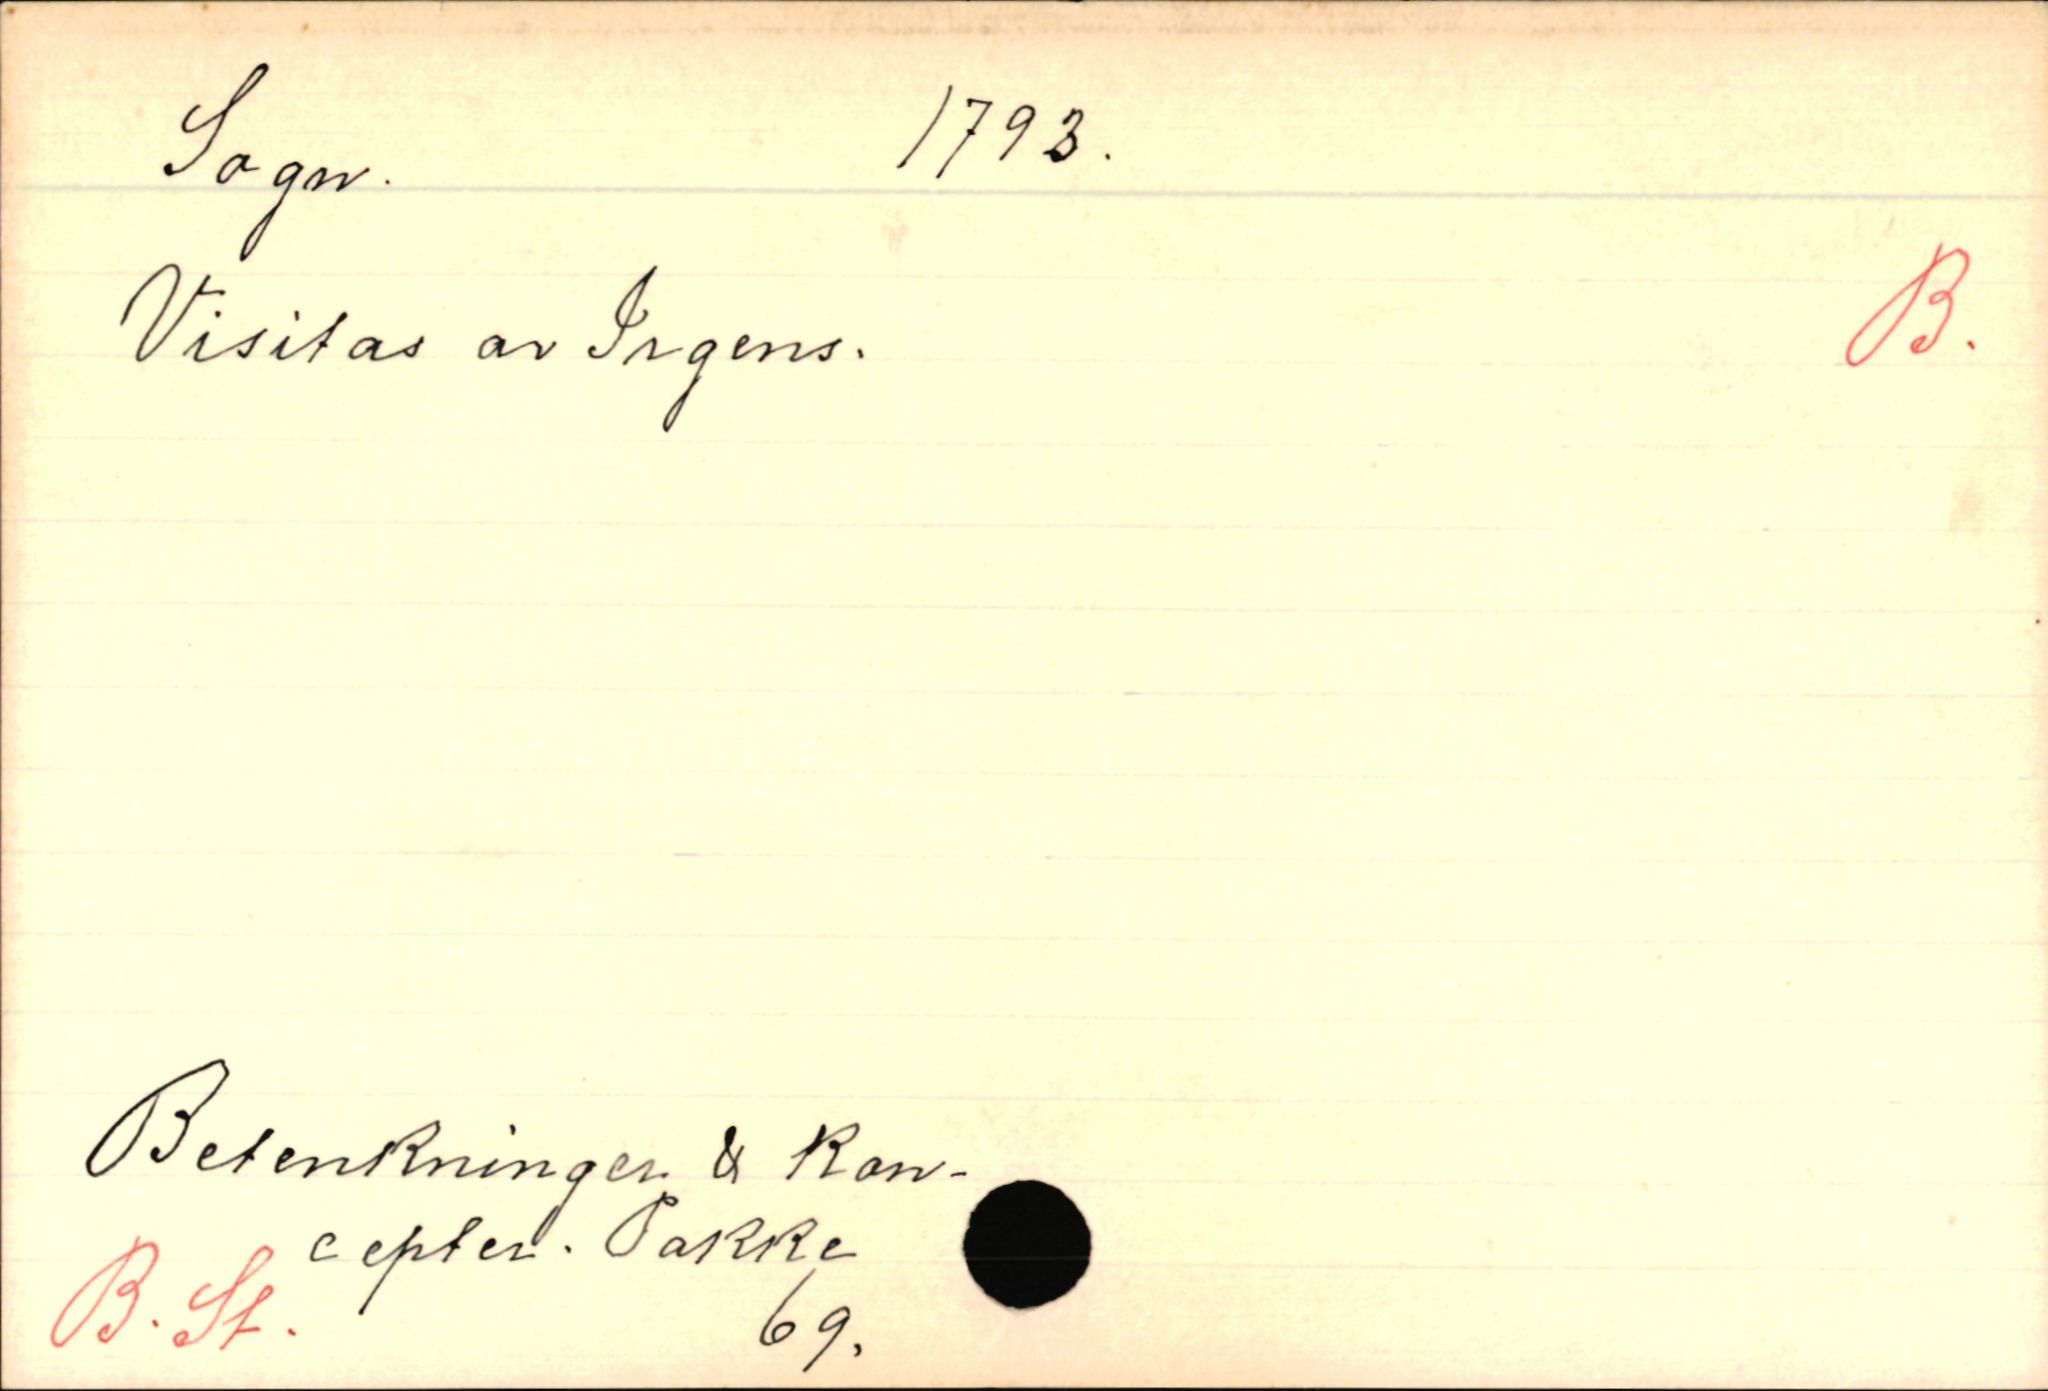 Sogn. 1793.
Visitas av Irgens.
B.
Betenkninger & Kon-
cepter. Pakke
69.
B. St.